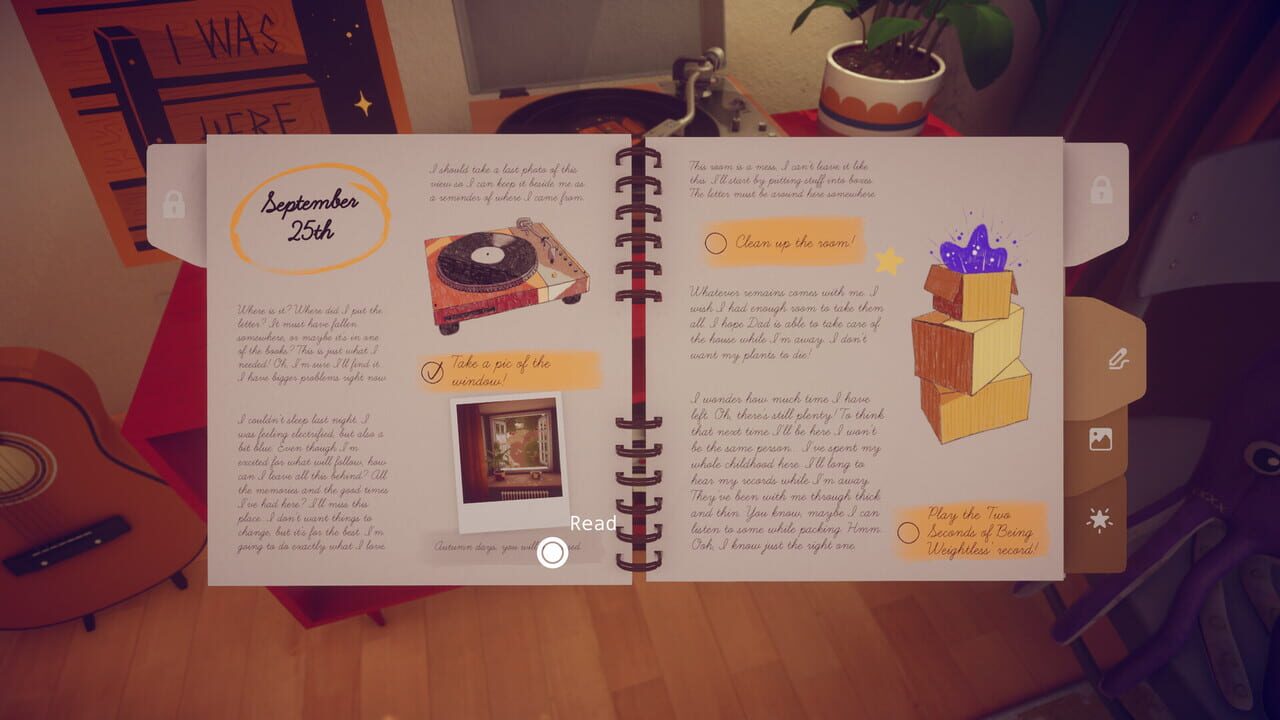 I WAS
HERE
September
25th
Where is it? Where did I put the
letter? It must have fallen
somewhere, or maybe it's in one
of the books? This is just what I
needed! Oh, I'm sure I'll find it.
I have bigger problems right now.
I couldn't sleep last night. I
was feeling electrified, but also a
bit blue. Even though I'm
excited for what will follow, how
can I leave all this behind? All
the memories and the good times
I've had here? I'll miss this
place. I don't want things to
change, but it's for the best. I'm
going to do exactly what I love.
I should take a last photo of this
view so I can keep it beside me as
a reminder of where I came from.
Take a pic of the
window!
Autumn days, you will
Read
This room is a mess, I can't leave it like
this. I'll start by putting stuff into boxes.
The letter must be around here somewhere.
Clean up the room!
Whatever remains comes with me. I
wish I had enough room to take them
all. I hope Dad is able to take care of
the house while I'm away. I don't
want my plants to die!
I wonder how much time I have
left. Oh, there's still plenty! To think
that next time I'll be here I won't
be the same person... I've spent my
whole childhood here. I'll long to
hear my records while I'm away.
They've been with me through thick
and thin. You know, maybe I can
listen to some while packing. Hmm...
Ooh, I know just the right one.
Play the Two
Seconds of Being
Weightless record!